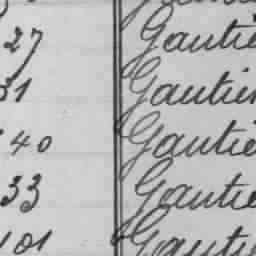 27 Gautie
31 Gautier
40 Gautie
33 Gautie
101 Gautie